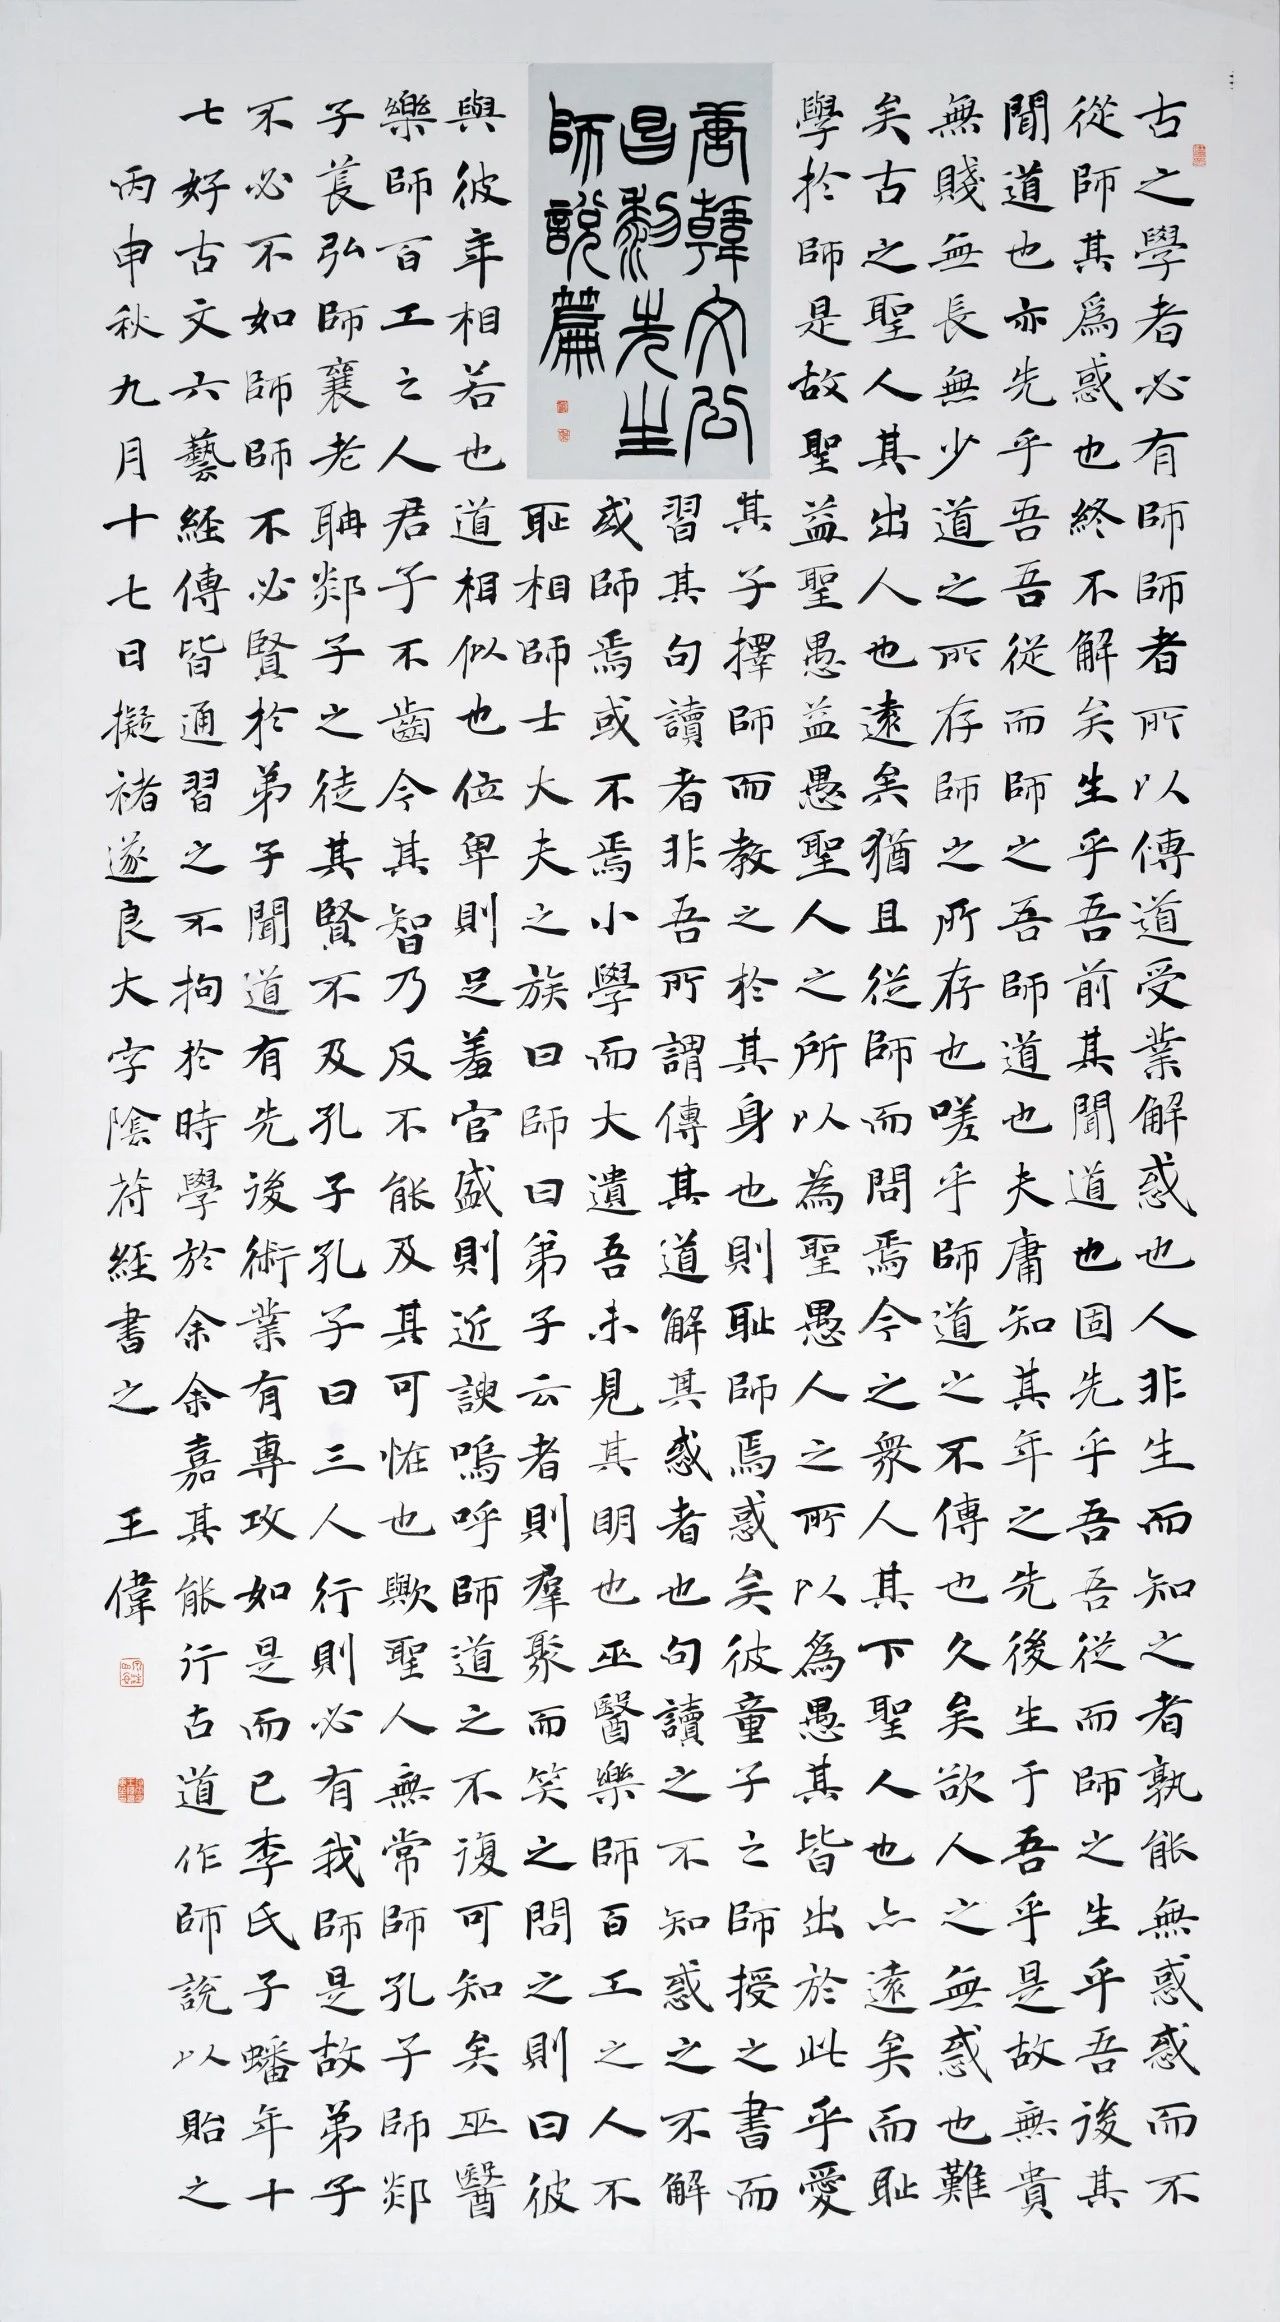 古之學者必有師師者所以傳道受業解惑也人非生而知之者孰能無惑惑而不
從師其爲惑也終不解矣生乎吾前其聞道也固先乎吾吾從而師之生乎吾後其
聞道也亦先乎吾吾從而師之吾師道也夫庸知其年之先後生于吾乎是故無貴
無賤無長無少道之所存師之所存也嗟乎師道之不傳也久矣欲人之無惑也難
矣古之聖人其出人也遠矣猶且從師而問焉今之衆人其下聖人也亦遠矣而耻
學於師是故聖益聖愚益愚聖人之所以為聖愚人之所以爲愚其皆出於此乎愛
唐韓文公
昌黎先生
師說篇
其子擇師而教之於其身也則耻師焉惑矣彼童子之師授之書而
習其句讀者非吾所謂傳其道解其惑者也句讀之不知惑之不解
或師焉或不焉小學而大遺吾未見其明也巫醫樂師百工之人不
耻相師士大夫之族曰師曰弟子云者則羣聚而笑之問之則曰彼
與彼年相若也道相似也位卑則足羞官盛則近諛嗚呼師道之不復可知矣巫醫
樂師百工之人君子不齒今其智乃反不能及其可恠也歟聖人無常師孔子師郯
子萇弘師襄老聃郯子之徒其賢不及孔子孔子曰三人行則必有我師是故弟子
不必不如師師不必賢於弟子聞道有先後術業有專攻如是而已李氏子蟠年十
七好古文六藝經傳皆通習之不拘於時學於余余嘉其能行古道作師說以貽之
丙申秋九月十七日擬褚遂良大字陰符經書之 王偉